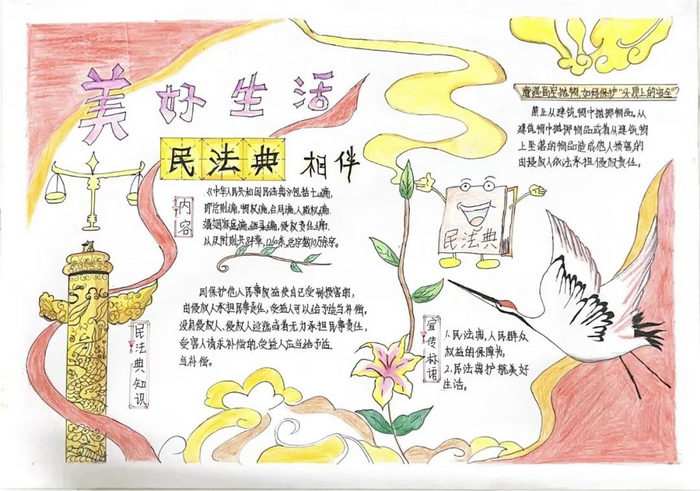 美好生活
民法典相伴
内容
《中华人民共和国民法典》分为七编，
即总则编、物权编、合同编、人格权编、
婚姻家庭编、继承编、侵权责任编，
以及附则共84章、1260条，总字数10万余字。
因保护他人民事权益使自己受到损害的，
由侵权人承担民事责任，受益人可以给予适当补偿。
没有侵权人、侵权人逃逸或者无力承担民事责任，
受害人请求补偿的，受益人应当给予适
当补偿。
民法典知识
遭遇高空抛物，如何保护“头顶上的安全”
禁止从建筑物中抛掷物品。从
建筑物中抛掷物品或者从建筑物
上坠落的物品造成他人损害的
由侵权人依法承担侵权责任。
民法典
宣传标语
1.民法典，人民群众
权益的保障书
2.民法典护航美好
生活。